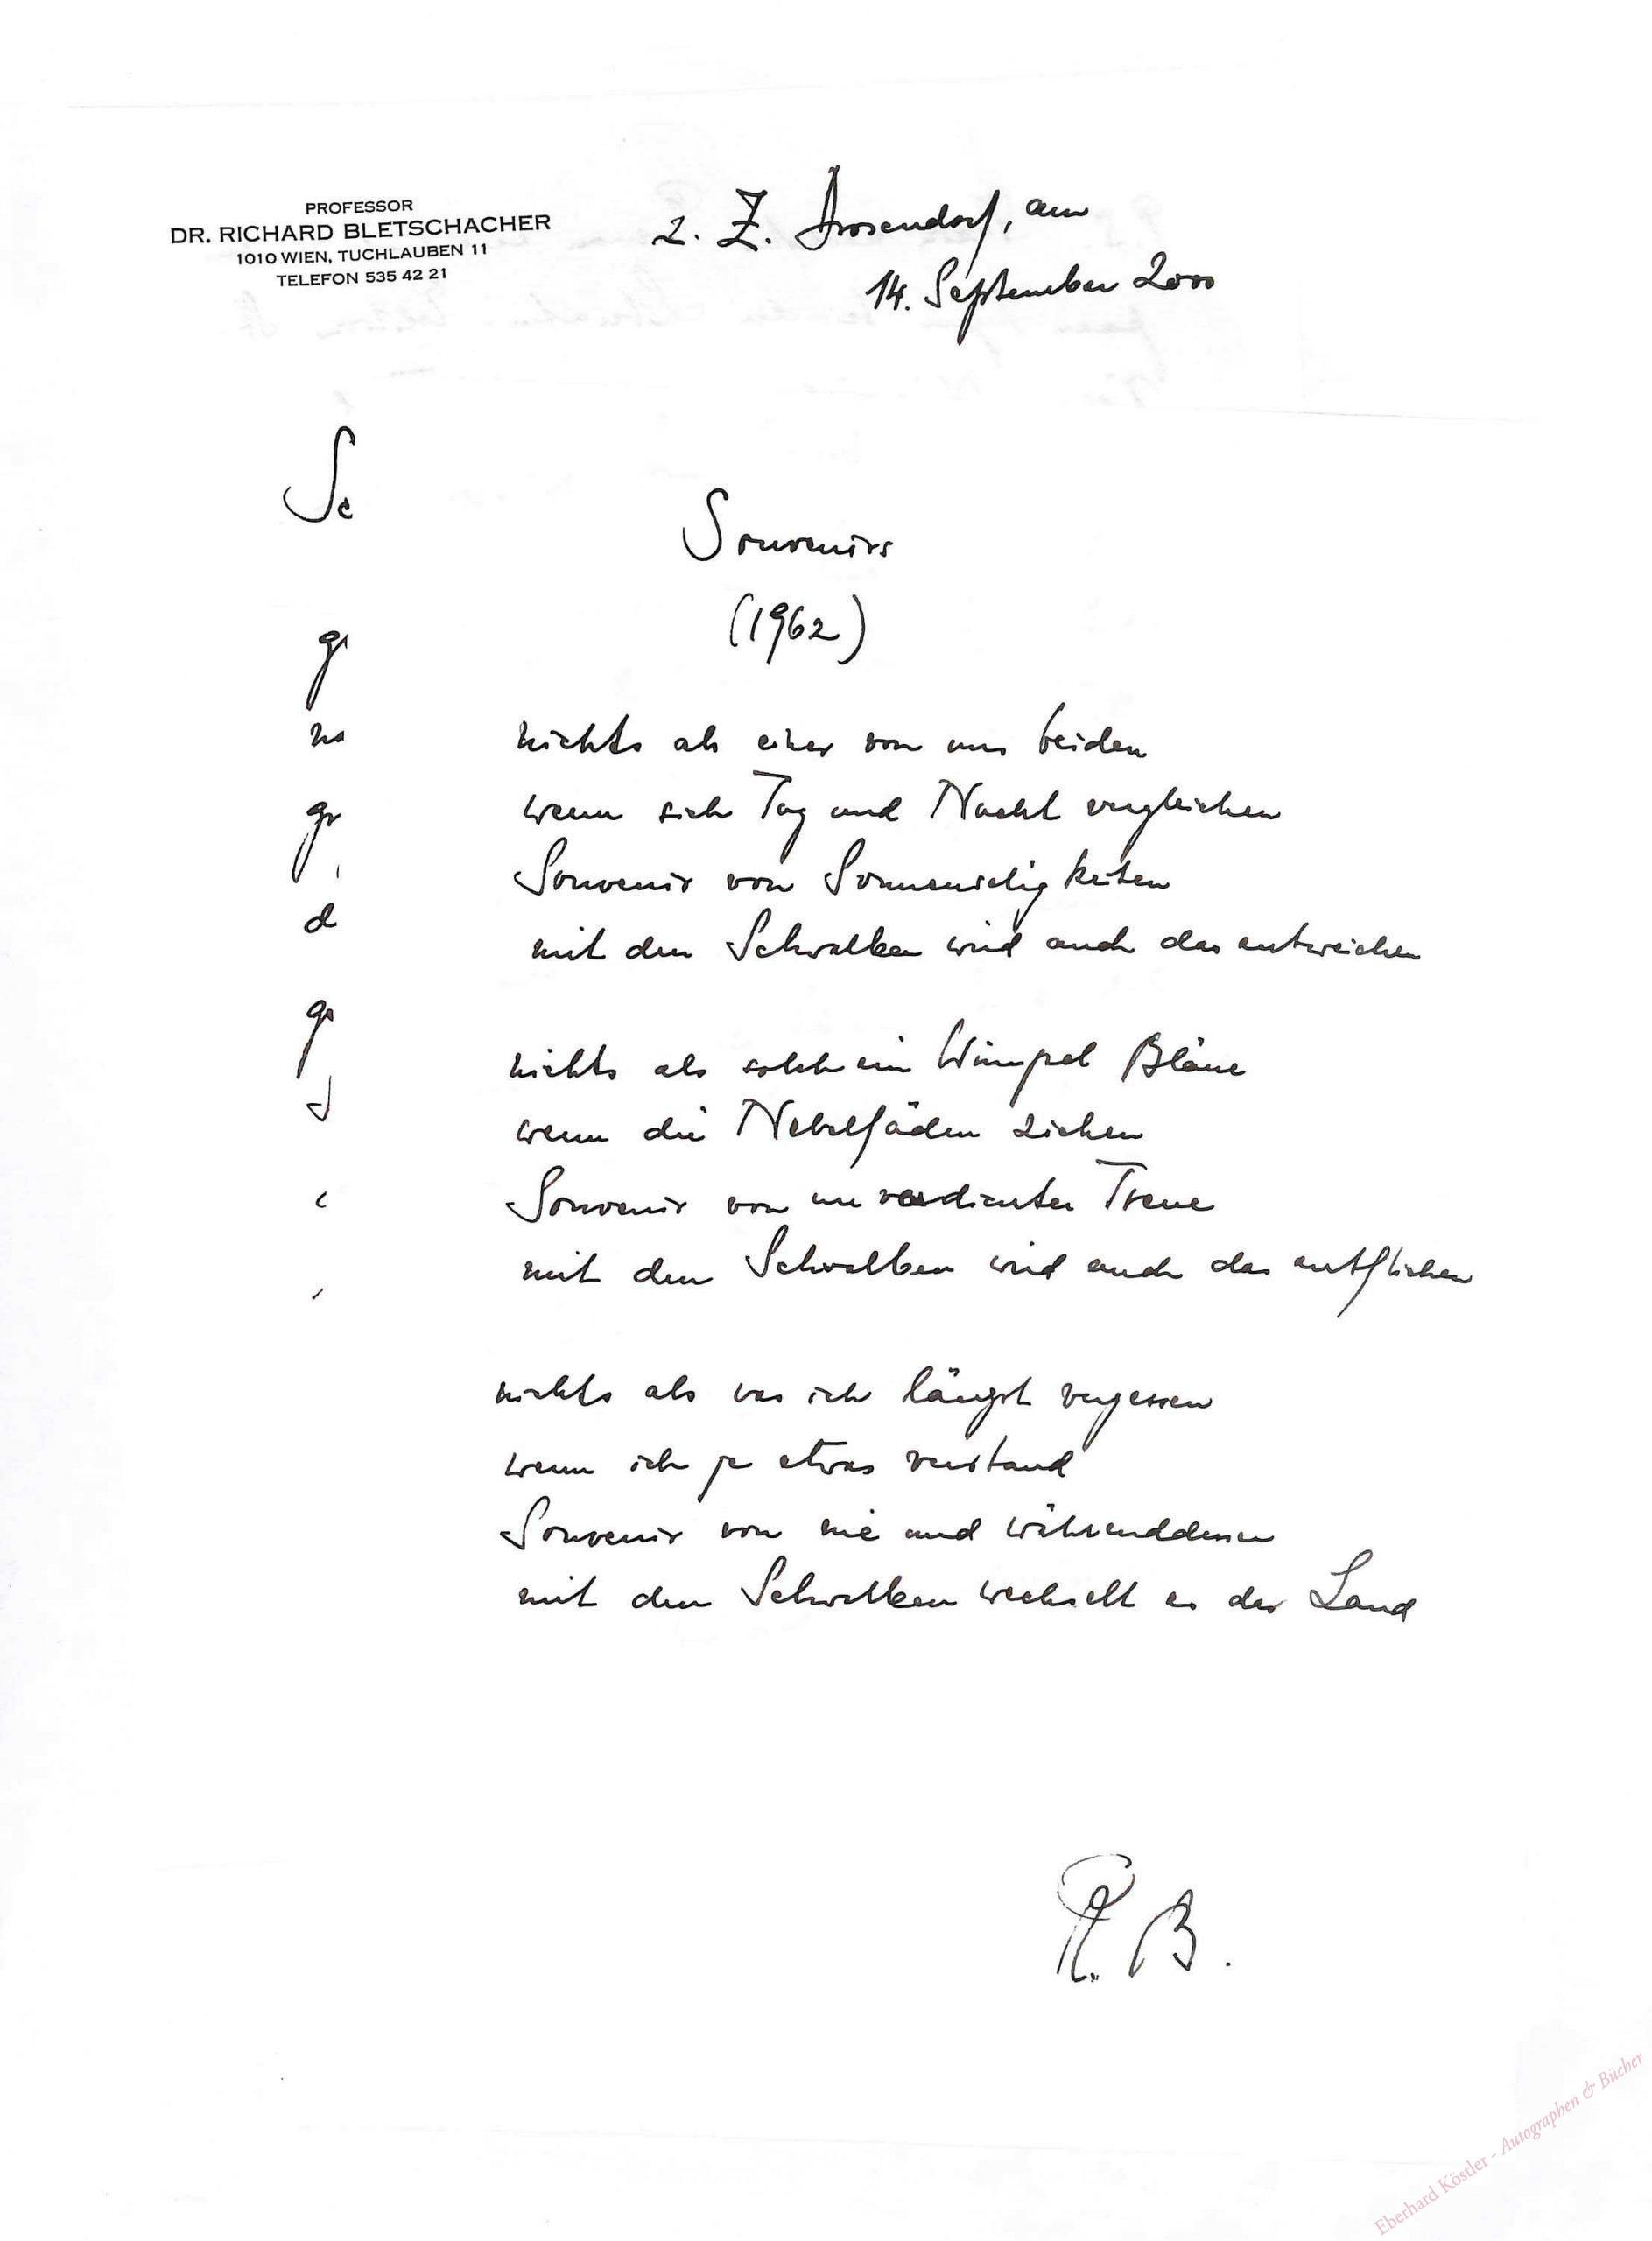 PROFESSOR
DR. RICHARD BLETSCHACHER
1010 WIEN, TUCHLAUBEN 11
TELEFON 535 42 21
z. Z. Drosendorf, am
14. September 2000
Souvenirs
(1962)
nichts als einer von uns beiden
wenn sich Tag und Nacht vergleichen
Souvenir von Sonnenseligkeiten
mit den Schwalben wird auch das entweichen
nichts als solch ein Wimpel Bläue
wenn die Nebelfäden ziehen
Souvenir von unverdienter Treue
mit den Schwalben wird auch das entfliehen
nichts als was ich längst vergessen
wenn ich je etwas verstand
Souvenir von nie und währenddessen
mit den Schwalben wechselt es das Land
R. B.
Eberhard Köstler - Autographen & Bücher